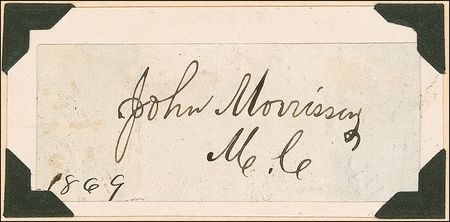 John Morrissey
M. C
1869